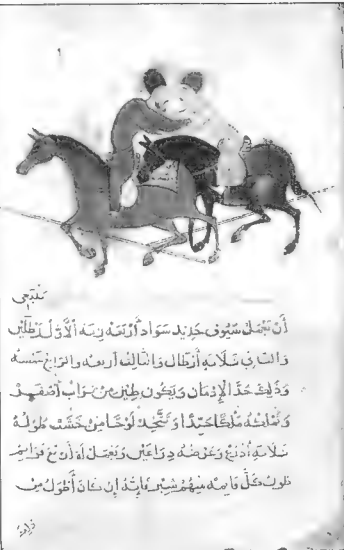 ينبغي
أن تعمل سيوف حديد سواد أربعة زنة الأول رطلين
والثاني ثلاثة أرطال والثالث أربعة والرابع خمسة
وذلك حد الإدمان ويكون طين من تراب أصفهد
لوحا من خشب طوله
ثلاثة أذرع وعرضه ذراعين وتعمل له أربع قوايم
طول كل قايمة منهم شبر فإنه إن كان أطول من
ذلك